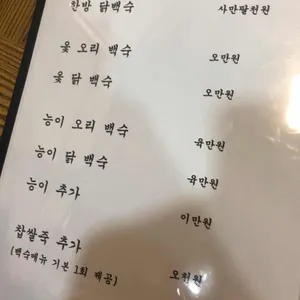 한방 닭백숙 사만팔천원
옻 오리 백숙 오만원
옻 닭 백숙 오만원
능이 오리 백숙 육만원
능이 닭 백숙 육만원
능이 추가 이만원
찹쌀죽 추가 오천원
(백숙메뉴 기본 1회 제공)